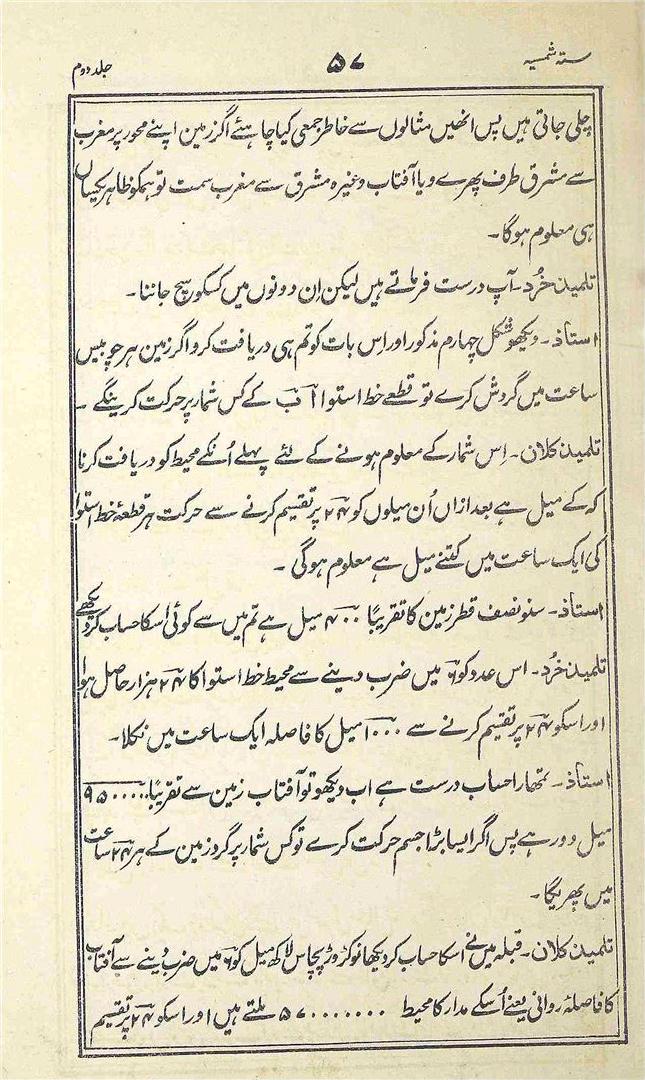 ستہ شمسیہ ۵۷ جلد دوم
چلی جاتی ہیں پس انھیں مثالوں سے خاطر جمعی کیا چاہئے اگر زمین اپنے محور پر مغرب
سے مشرق طرف پھرے ویا آفتاب وغیرہ مشرق سے مغرب سمت تو ہمکو ظاہر یکساں
ہی معلوم ہوگا۔
تلمیذ خُرد۔ آپ درست فرماتے ہیں لیکن اِن دونوں میں کسکو سچ جاننا۔
استاذ۔ دیکھو شکل چہارم مذکور اور اس بات کو تم ہی دریافت کرو اگر زمین ہر چوبیس
ساعت میں گردش کرے تو قطعے خط استوا آ ب کے کس شمار پر حرکت کرینگے۔
تلمیذ کلان۔ اِس شمار کے معلوم ہونے کے لئے پہلے اُنکے محیط کو دریافت کرنا
کہ کے میل ہے بعد ازاں اُن میلوں کو ۲۴ پر تقسیم کرنے سے حرکت ہر قطعۂ خط استوا
کی ایک ساعت میں کتنے میل ہے معلوم ہوگی۔
استاذ۔ سنو نصف قطر زمین کا تقریبًا ۴۰۰۰ میل ہے تم میں سے کوئی اسکا حساب کر دیکھے
تلمیذ خُرد۔ اس عدد کو ۶ میں ضرب دینے سے محیط خط استوا کا ۲۴ ہزار حاصل ہوا
اور اسکو ۲۴ پر تقسیم کرنے سے ۱۰۰۰ میل کا فاصلہ ایک ساعت میں نکلا۔
استاذ۔ تمھارا حساب درست ہے اب دیکھو تو آفتاب زمین سے تقریبًا ۹۵۰۰۰۰۰۰
میل دور ہے پس اگر ایسا بڑا جسم حرکت کرے تو کس شمار پر گرد زمین کے ہر ۲۴ ساعت
میں پھریگا۔
تلمیذ کلان۔ قبلہ میں نے اسکا حساب کر دیکھا نو کڑوڑ پچاس لاکھ میل کو ۶ میں ضرب دینے سے آفتاب
کا فاصلۂ روانی یعنے اُسکے مدار کا محیط ۵۷۰۰۰۰۰۰۰ ملتے ہیں اور اسکو ۲۴ پر تقسیم